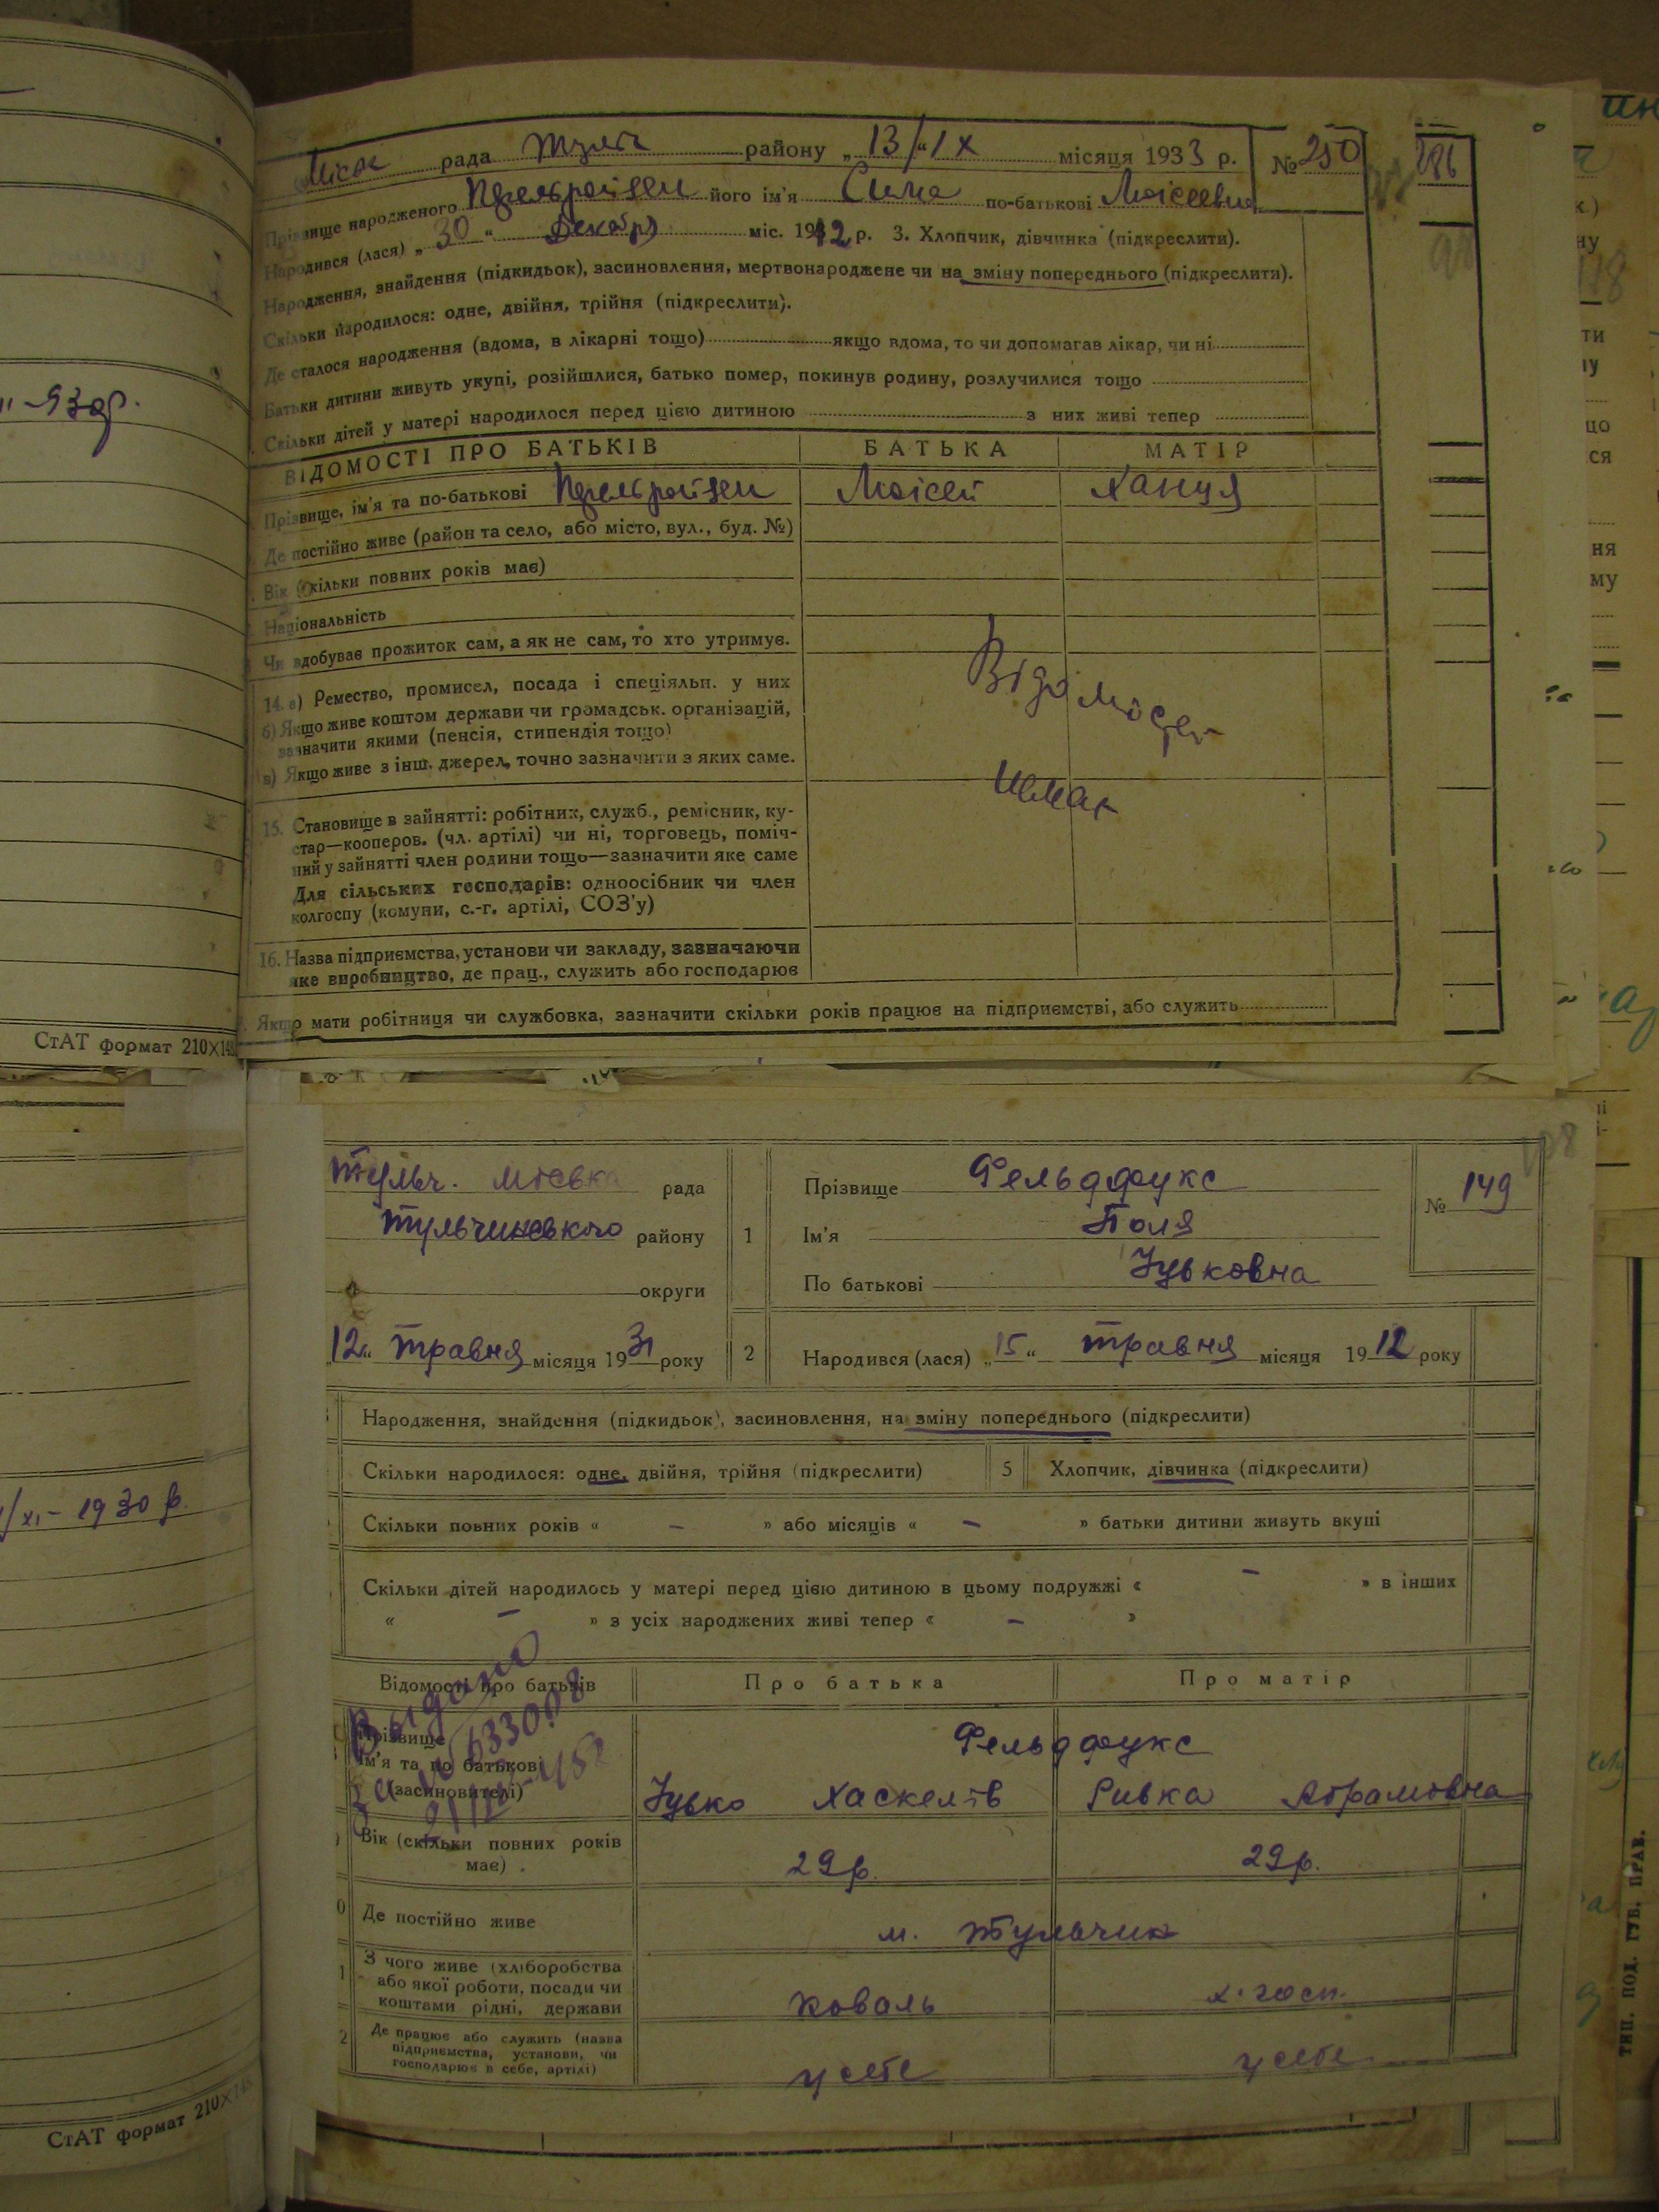 Міськ рада Тульч району „13/“ IX місяця 1933 р. № 250
286
Прізвище народженого його ім'я Сима по-батькові Моісеевна
Народився (лася) „30“ Декабр міс. 1912 р. 3. Хлопчик, дівчинка (підкреслити).
Народження, знайдення (підкидьок), засиновлення, мертвонароджене чи на зміну попереднього (підкреслити).
Скільки народилося: одне, двійня, трійня (підкреслити).
Де сталося народження (вдома, в лікарні тощо) якщо вдома, то чи допомагав лікар, чи ні
Батьки дитини живуть укупі, розійшлися, батько помер, покинув родину, розлучилися тощо
Скільки дітей у матері народилося перед цією дитиною з них живі тепер
ВІДОМОСТІ ПРО БАТЬКІВ БАТЬКА МАТІР
Прізвище, ім'я та по-батькові Моісей Хануя
Де постійно живе (район та село, або місто, вул., буд. №)
Вік (скільки повних років має)
Національність
Чи здобуває прожиток сам, а як не сам, то хто утримує.
14. а) Ремество, промисел, посада і спеціяльн. у них
б) Якщо живе коштом держави чи громадськ. організацій,
зазначити якими (пенсія, стипендія тощо)
в) Якщо живе з інш. джерел, точно зазначити з яких саме.
Відомостей
немає
15. Становище в зайнятті: робітник, служб., ремісник, ку-
стар—кооперов. (чл. артілі) чи ні, торговець, поміч-
ний у зайнятті член родини тощо—зазначити яке саме
Для сільських господарів: одноосібник чи член
колгоспу (комуни, с.-г. артілі, СОЗ'у)
16. Назва підприємства, установи чи закладу, зазначаючи
яке виробництво, де прац., служить або господарює
Якщо мати робітниця чи службовка, зазначити скільки років працює на підприємстві, або служить
СтАТ формат 210×148
Тульч. міська рада
Тульчинського району
округи
„12“ травня місяця 1931 року
1 Прізвище Фельдфукс
Ім'я Поля
По батькові Зуьковна
№ 149
2 Народився (лася) „15“ травня місяця 1912 року
Народження, знайдення (підкидьок), засиновлення, на зміну попереднього (підкреслити)
Скільки народилося: одне, двійня, трійня (підкреслити) 5 Хлопчик, дівчинка (підкреслити)
Скільки повних років « – » або місяців « – » батьки дитини живуть вкупі
Скільки дітей народилось у матері перед цією дитиною в цьому подружжі « – » в інших
« – » з усіх народжених живі тепер « – »
Відомості про батьків Про батька Про матір
Прізвище Фельдфукс
Ім'я та по батькові
(засиновителі) Зуько Хаскелів Ривка Абрамовна
Вік (скільки повних років
має) 29 р. 29 р.
Де постійно живе м. Тульчин
З чого живе (хліборобства
або якої роботи, посади чи
коштами рідні, держави коваль х. госп.
Де працює або служить (назва
підприємства, установи, чи
господарює в себе, артілі) у себе у себе
/XI – 1930 р.
СтАТ формат 210×148
ТИП. ПОД. ГУБ. ПРАВ.